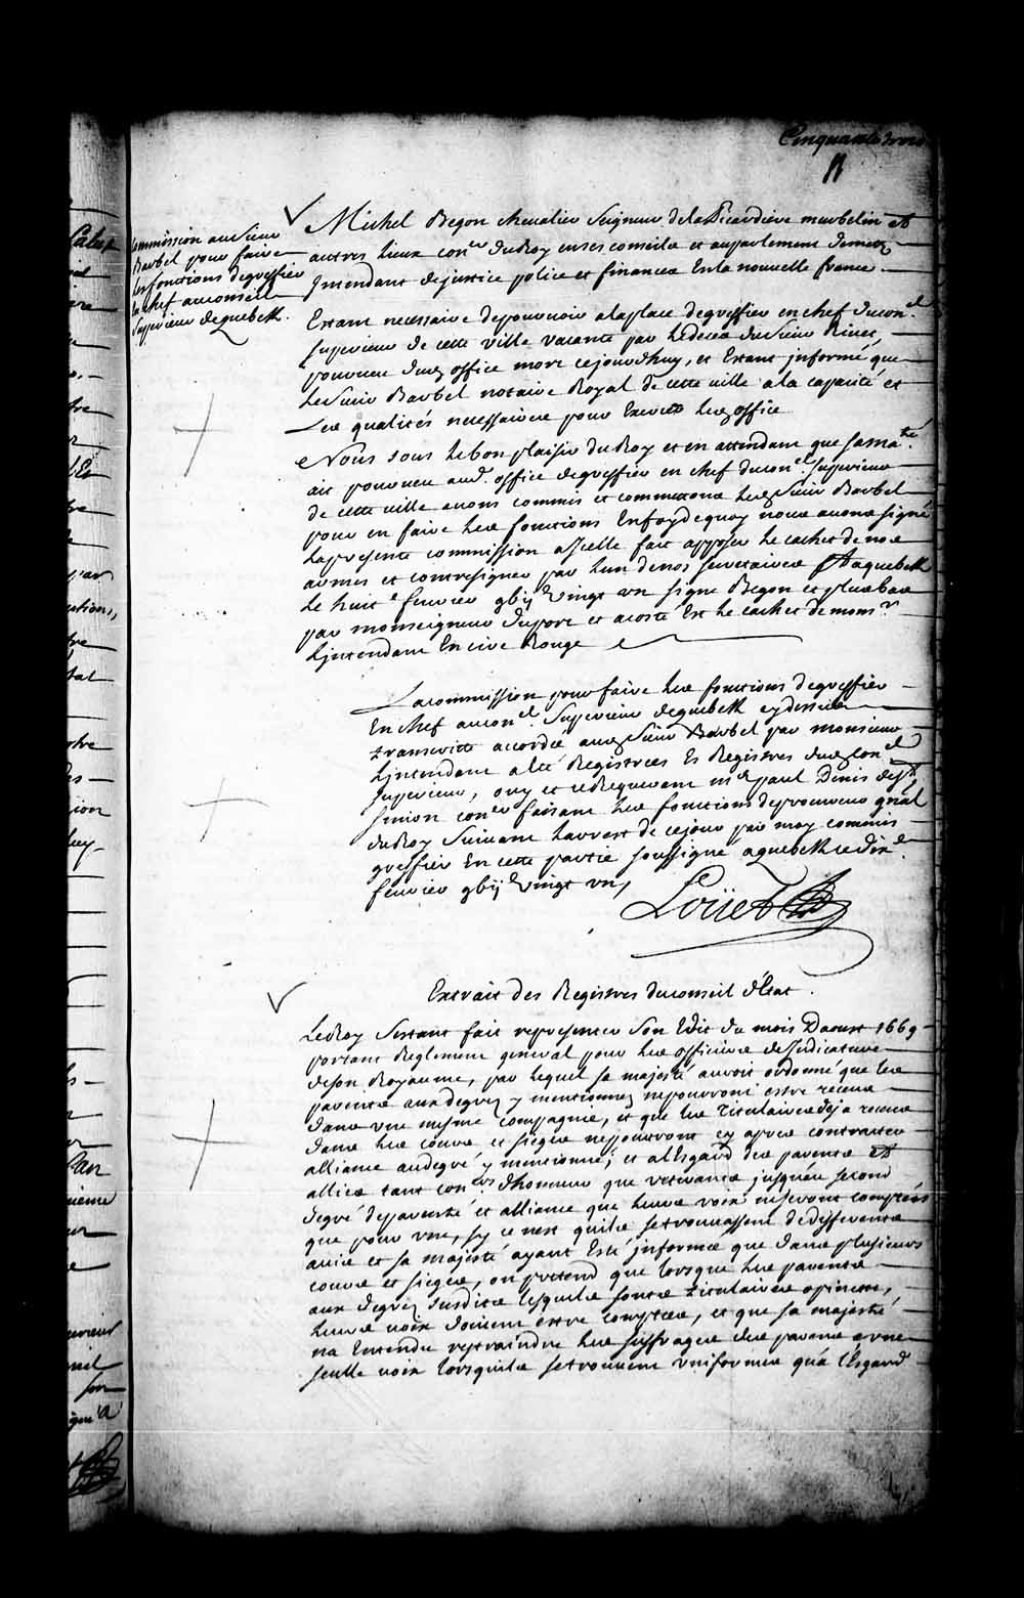 Cinquante trois
Commission au Sieur
Barbel pour faire
les fonctions de greffier
en chef au conseil
Superieur de quebek.
Michel Begon chevalier Seigneur de la Picardiere murbelin et
autres lieux con.er du Roy en ses conseils et au parlement de metz
Intendant de justice police et finances En la nouvelle france
Estant necessaire de pourvoir a la place de greffier en chef du con.el
superieur de cette ville vacante par le deces du Sieur Rivet
pourveu dud office mort cejourdhuy, et Estant informé que
le Sieur Barbel notaire Royal de cette ville a la capacité et
Les qualités necessaires pour Exercer led office
Nous sous le bon plaisir du Roy et en attendant que sa ma.té
ait pourveu aud. office de greffier en chef du con.el superieur
de cette ville avons commis et commettons led Sieur Barbel
pour en faire les fonctions En foy de quoy nous avons signé
la presente commission a Icelle fait apposer le cachet de nos
armes et contresigner par l'un de nos secretaires A quebek
le huit.e fevrier gbij.c vingt un signe Begon et plus bas
par monseigneur dupore et a costé Est le cachet de mons.r
L'jntendant En cire Rouge
La commission pour faire les fonctions de greffier
En chef au con.el Superieur de quebek cy dessus
transcritte accordée aud Sieur Barbel par monsieur
L'jntendant a Eté Registrée Es Registres dud con.el
superieur, ouy et ce Requerant m.e paul Denis de S.t
simon con.er faisant les fonctions de procureur gnal
du Roy Suivant l'arrest de ce jour par moy commis
greffier En cette partie soussigné a quebek ce dix
fevrier gbij.c vingt un,
Loüet
Extrait des Registres du conseil d'Etat.
Le Roy s'estant fait representer son Edit du mois Daoust 1669
portant Reglement general pour les officiers de Judicature
de son Royaume, par lequel sa majesté auroit ordonné que les
parents aux degrez y mentionnez ne pourront estre receus
dans une mesme compagnie, et que les titulaires deja receus
dans les cours et sieges ne pourront cy apres contracter
alliance au degré y mentionné; et a l'Egard des parents et
alliés tant con.ers d'honneur que veterans jusqu'au second
degré de parenté et alliance que leurs voix ne seront comptées
que pour une, sy ce n'est qu'ils se trouvassent de differents
avis et sa majesté ayant Esté informée que dans plusieurs
cours et sieges, on pretend que lorsque les parents
aux degrez susdits lesquels sont titulaires opinent,
leurs voix doivent estre comptées, et que sa majesté
n'a Entendu restraindre les suffrages des parens a une
seulle voix lorsqu'ils se trouvent uniformes qu'a l'Egard